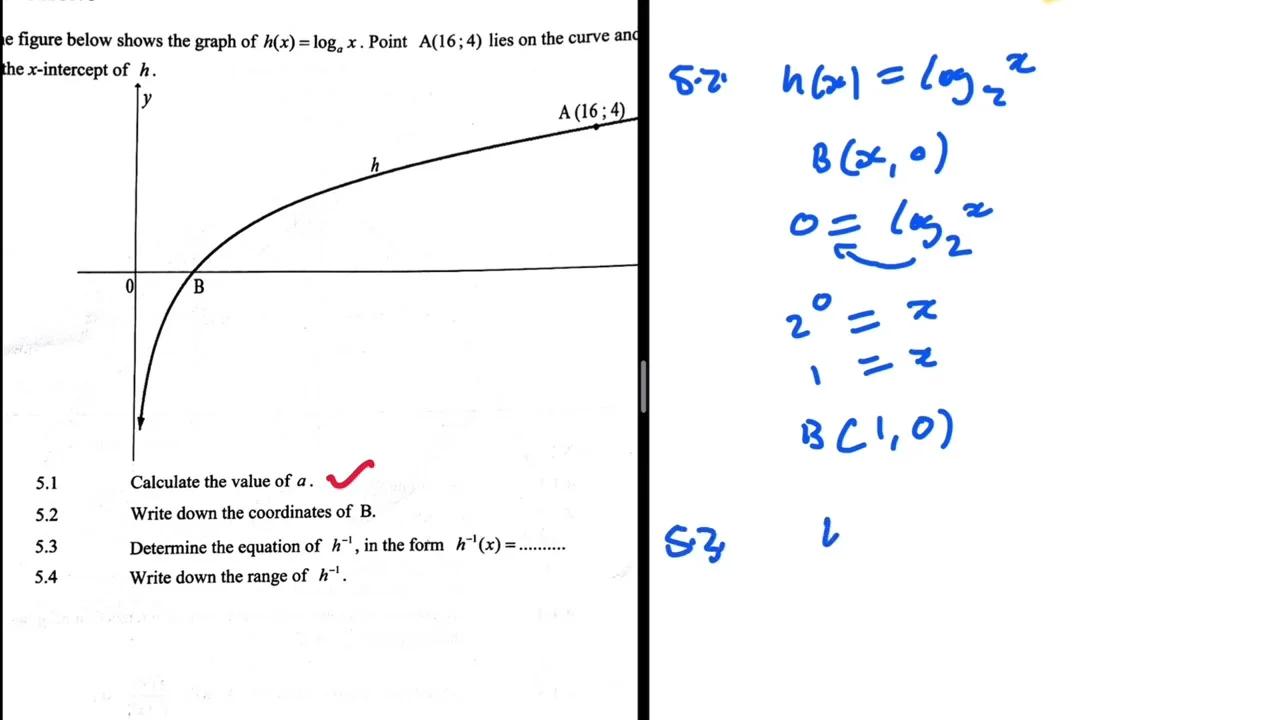 e figure below shows the graph of h(x) = logₐ x. Point A(16 ; 4) lies on the curve and
the x-intercept of h.
y
A (16 ; 4)
h
0
B
5.1 Calculate the value of a.
5.2 Write down the coordinates of B.
5.3 Determine the equation of h⁻¹, in the form h⁻¹(x) = ..........
5.4 Write down the range of h⁻¹.
5.2. h(x) = log₂ x
B(x, 0)
0 = log₂ x
2⁰ = x
1 = x
B(1, 0)
5.3,